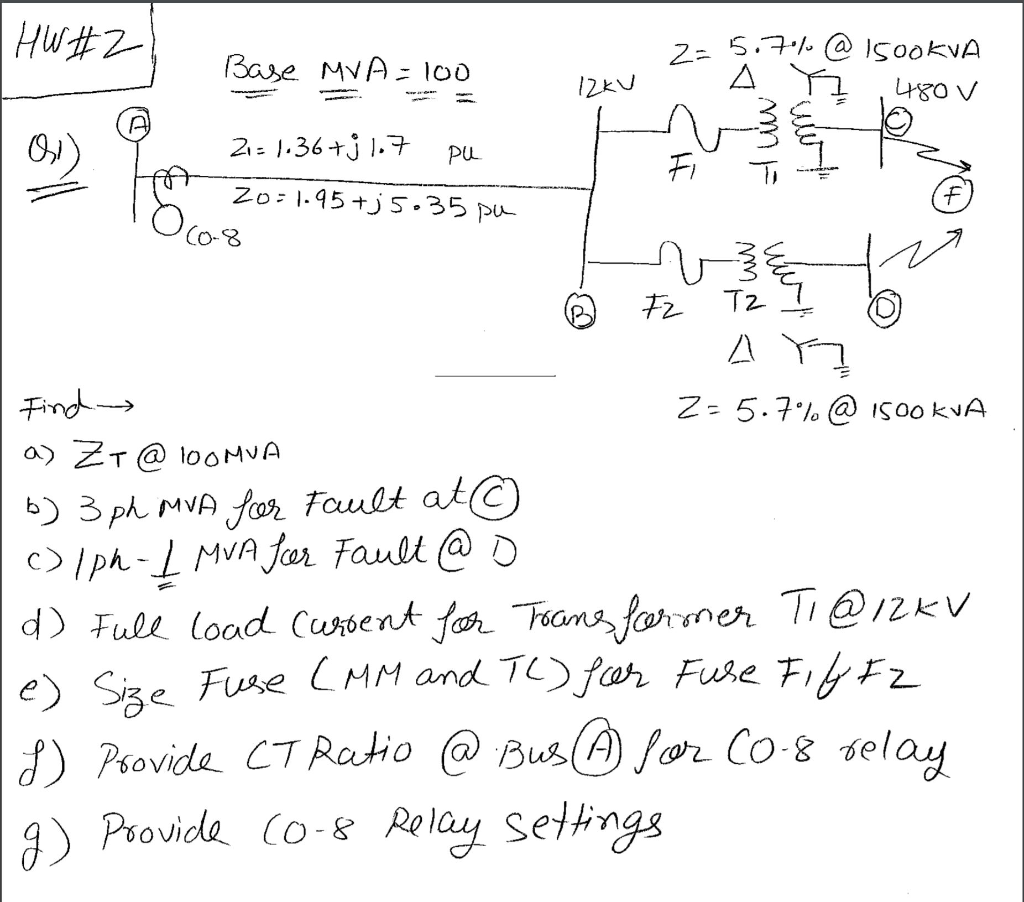 HW#2
Base MVA = 100
Z= 5.7% @ 1500KVA
Δ Y
12KV
480 V
A
C
Q1)
Z1= 1.36+j 1.7 pu
F1
T1
F
Z0= 1.95+j5.35 pu
CO-8
B
F2
T2
D
Δ Y
Z= 5.7% @ 1500 KVA
Find →
a) ZT @ 100MVA
b) 3 ph MVA for Fault at C
c) 1ph-⏚ MVA for Fault @ D
d) Full load Current for Transformer T1 @ 12KV
e) Size Fuse (MM and TC) for Fuse F1 & F2
f) Provide CT Ratio @ Bus A for CO-8 relay
g) Provide CO-8 Relay settings